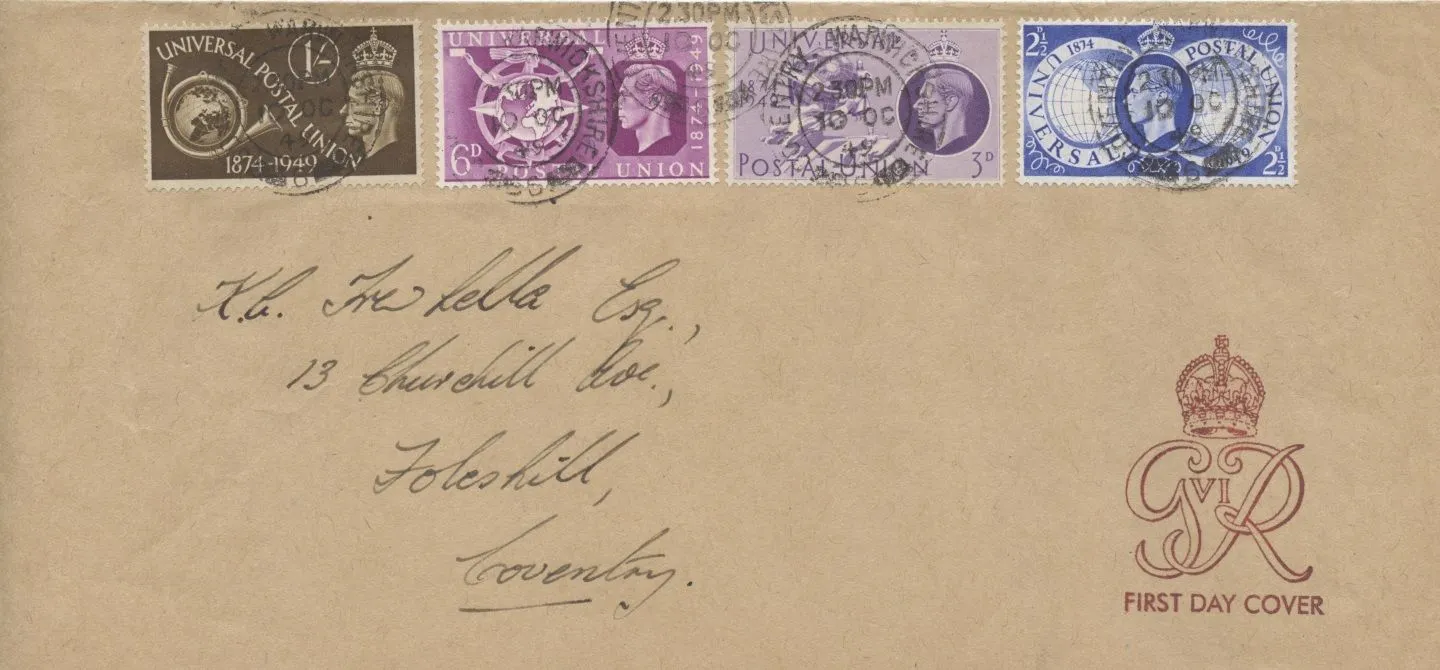 UNIVERSAL POSTAL UNION
1/-
1874-1949
UNIVERSAL
6D
POSTAL UNION
1874-1949
UNIVERSAL
1874
1949
POSTAL UNION 3D
2½ 1874 2½
UNIVERSAL POSTAL UNION
1949 2½
COVENTRY WARWICKSHIRE
2.30PM
10 OC
49
K.C. Trebella Esq.,
13 Churchill Ave.,
Foleshill,
Coventry.
GVIR
FIRST DAY COVER